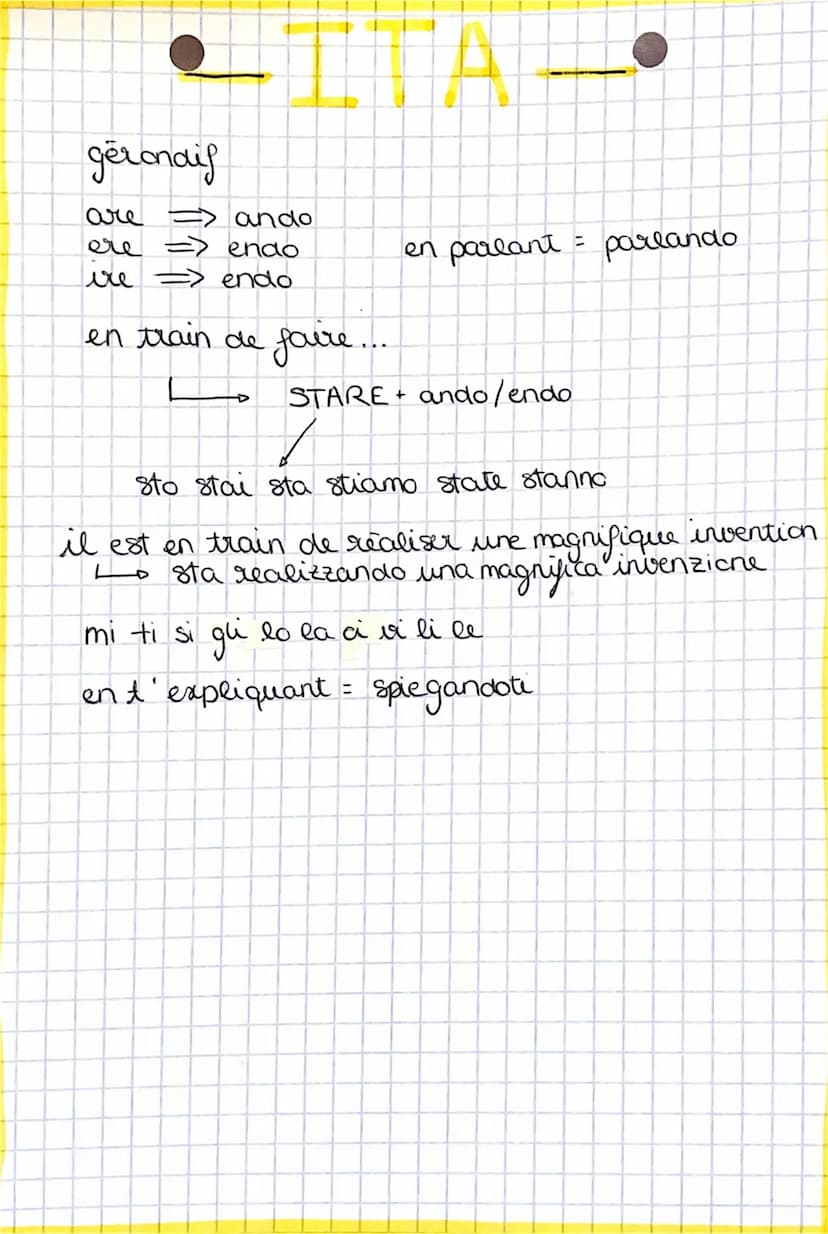 ITA
gérondif
are => ando
ere => endo
en parlant = parlando
ire => endo
en train de faire...
STARE + ando/endo
sto stai sta stiamo state stanno
il est en train de réaliser une magnifique invention
sta realizzando una magnifica invenzione
mi ti si gli lo la ci vi li le
en t'expliquant = spiegandoti